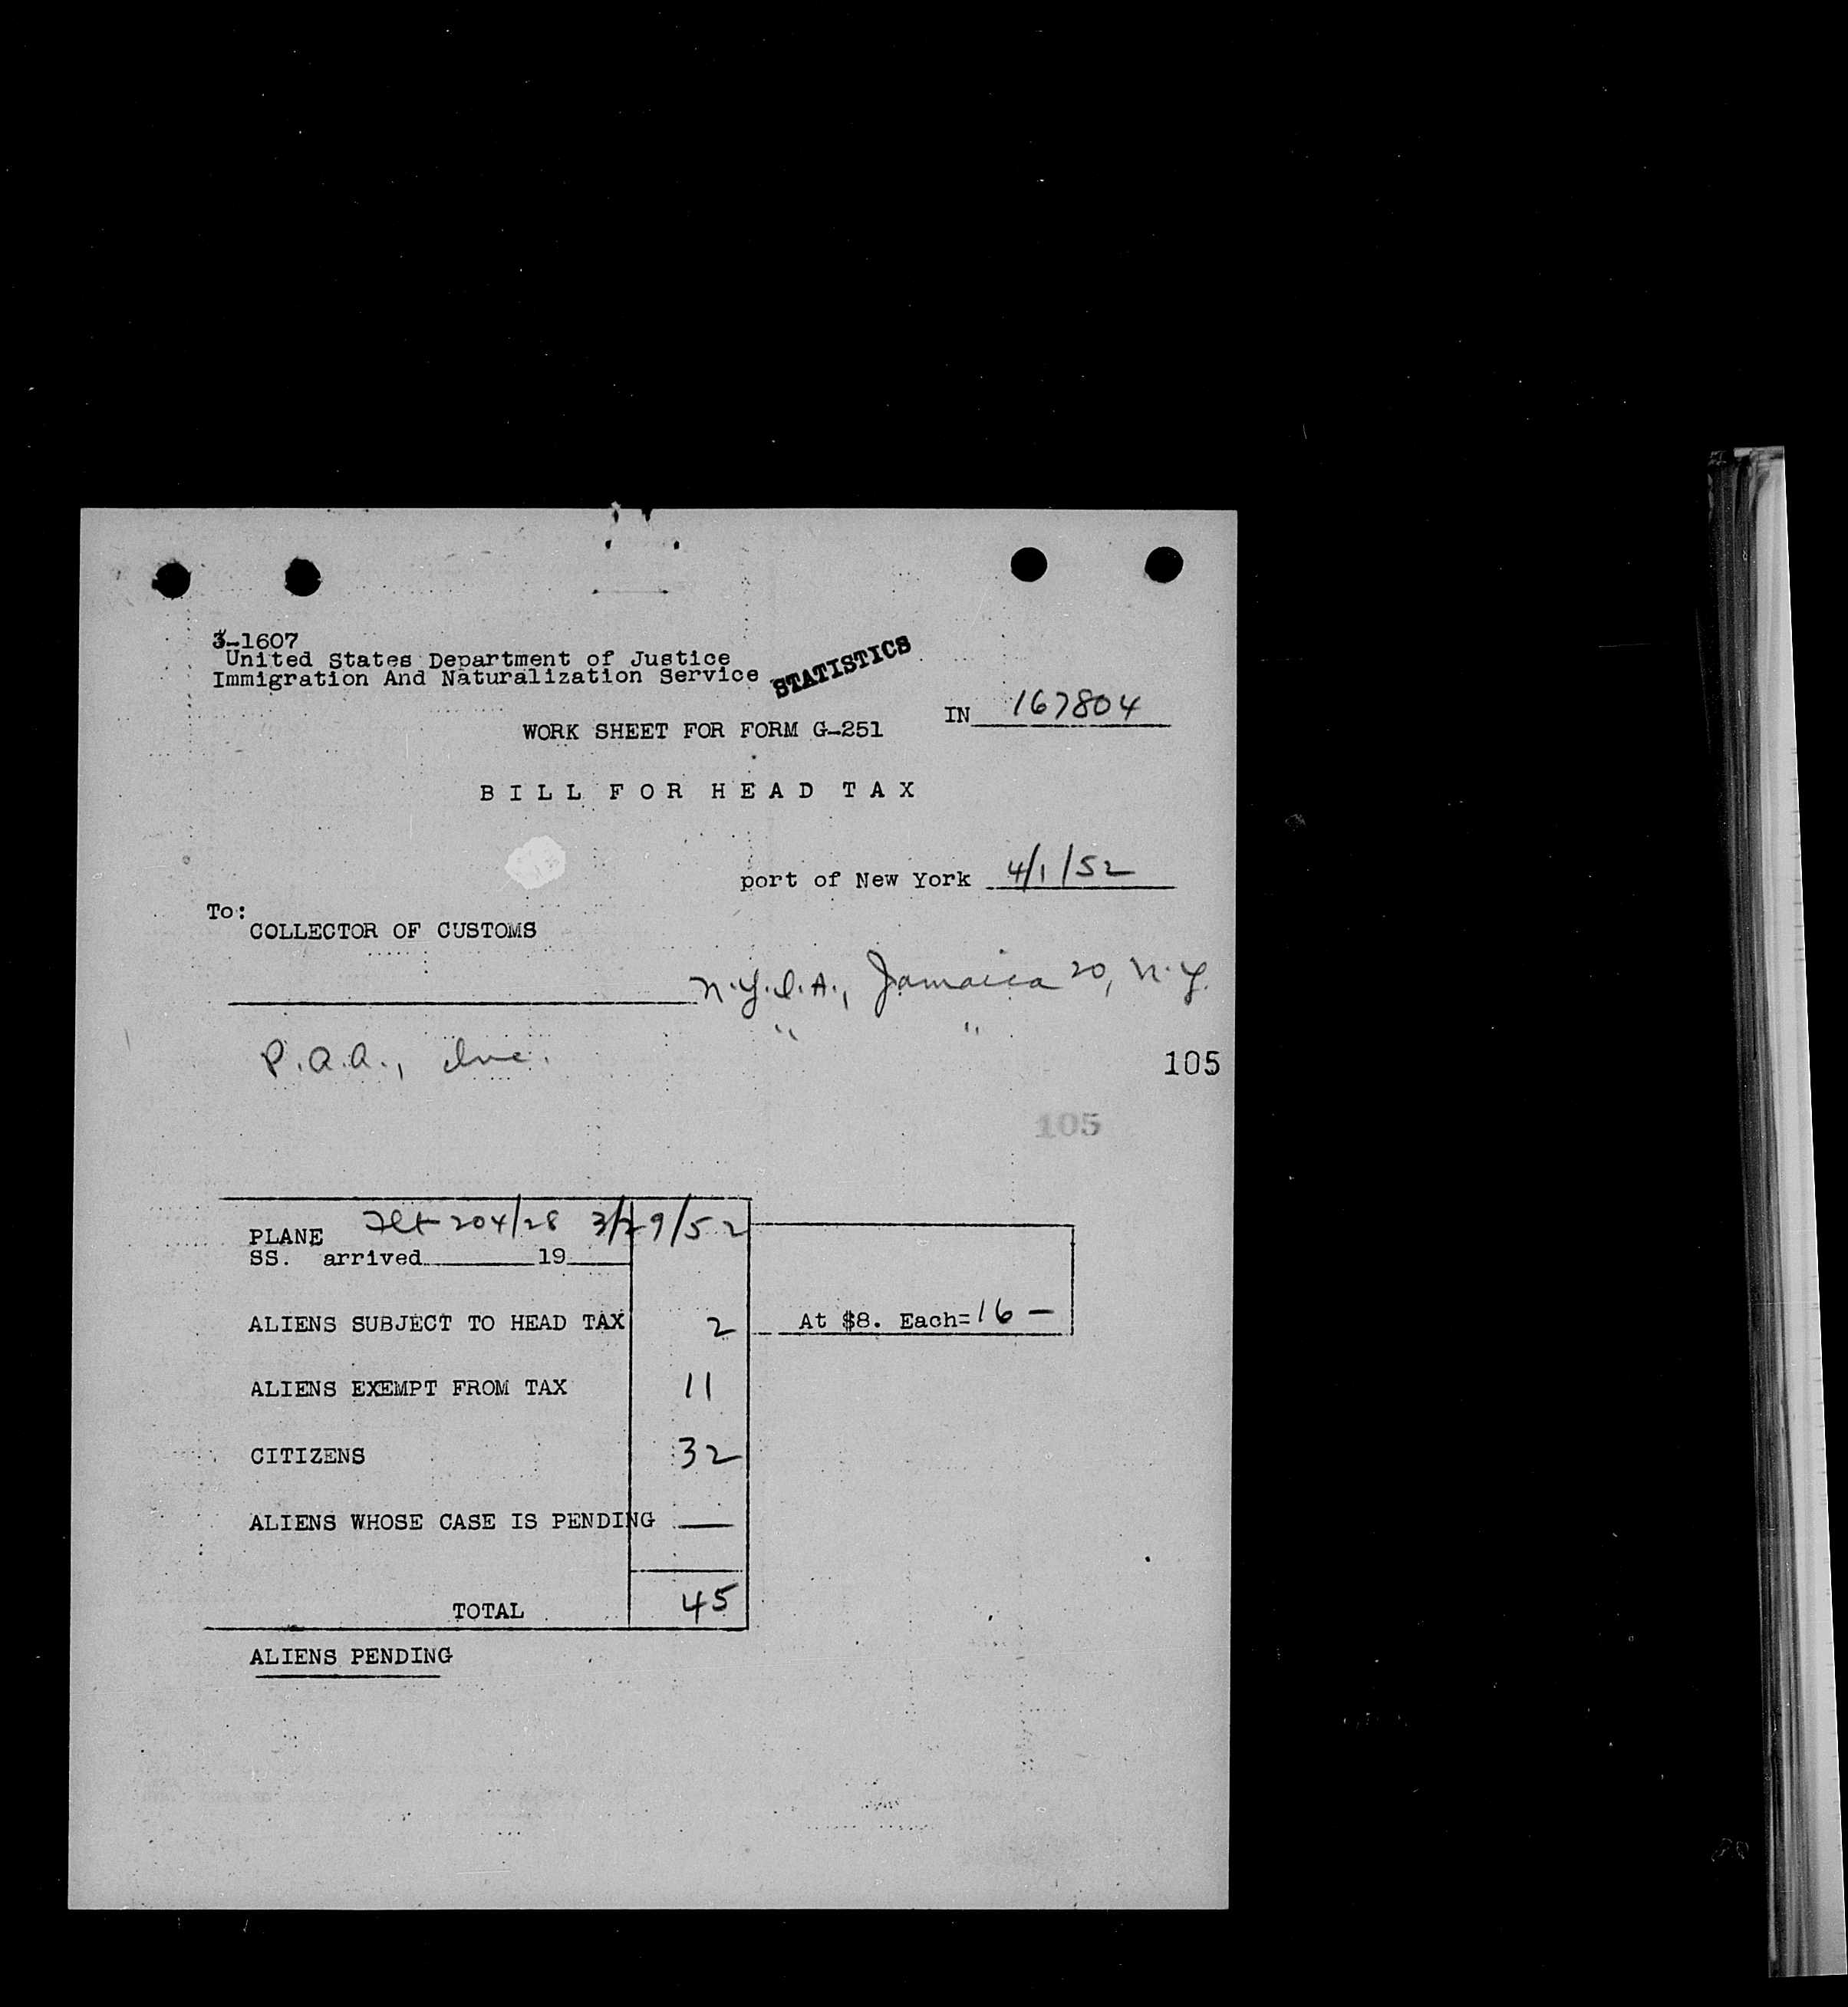 3-1607
United States Department of Justice
Immigration And Naturalization Service
STATISTICS
IN 167804
WORK SHEET FOR FORM G-251
BILL FOR HEAD TAX
port of New York 4/1/52
To:
COLLECTOR OF CUSTOMS
N.Y.I.A., Jamaica 20, N.Y.
P.A.A., Inc. " "
105
105
PLANE Flt 204/28 3/29/52
SS. arrived 19
ALIENS SUBJECT TO HEAD TAX 2 At $8. Each= 16 —
ALIENS EXEMPT FROM TAX 11
CITIZENS 32
ALIENS WHOSE CASE IS PENDING —
TOTAL 45
ALIENS PENDING